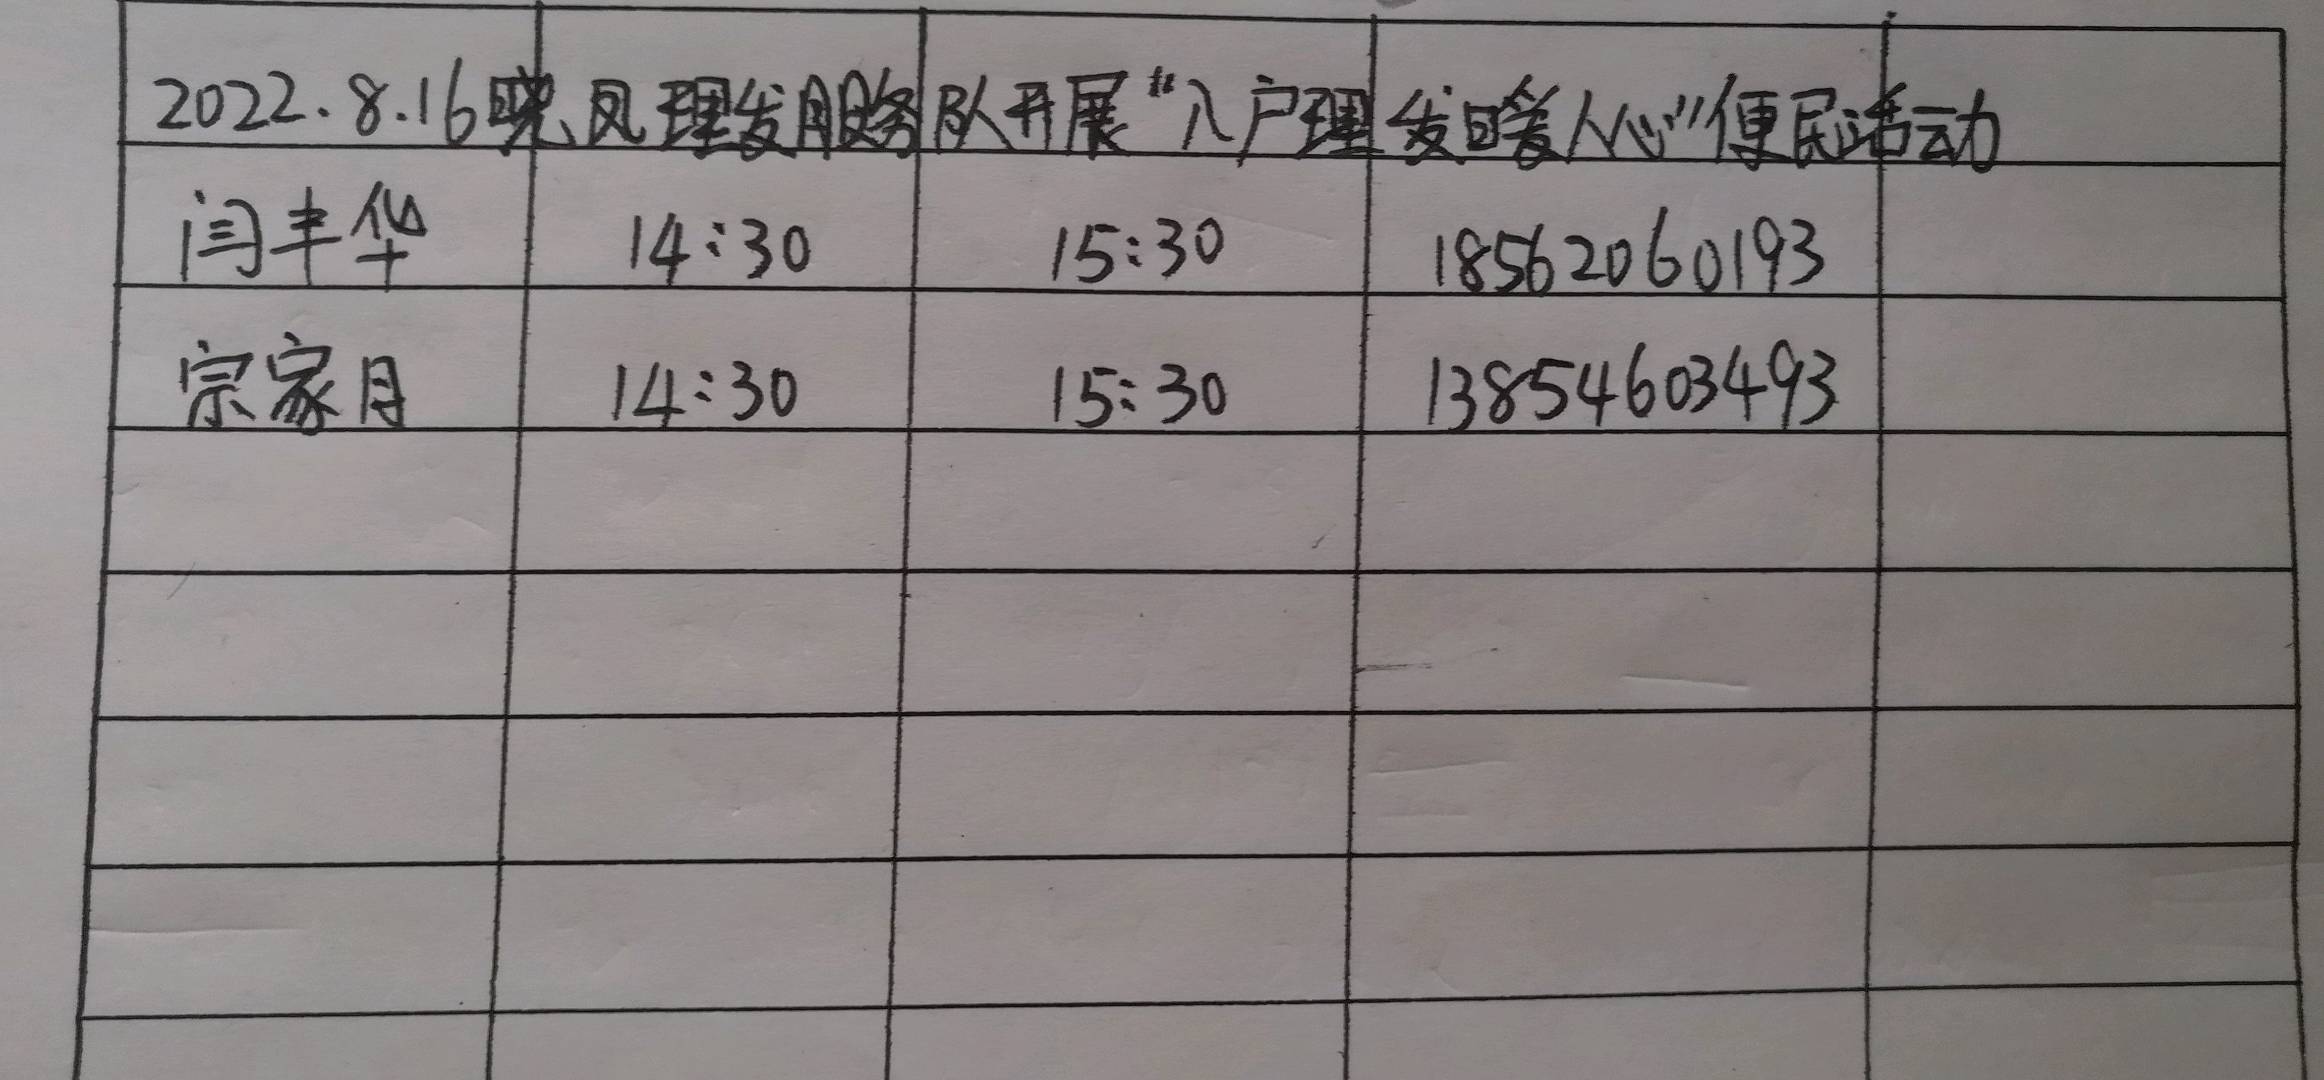 2022.8.16晓凤理发服务队开展“入户理发暖人心”便民活动
闫丰华 14:30 15:30 18562060193
宗家月 14:30 15:30 13854603493